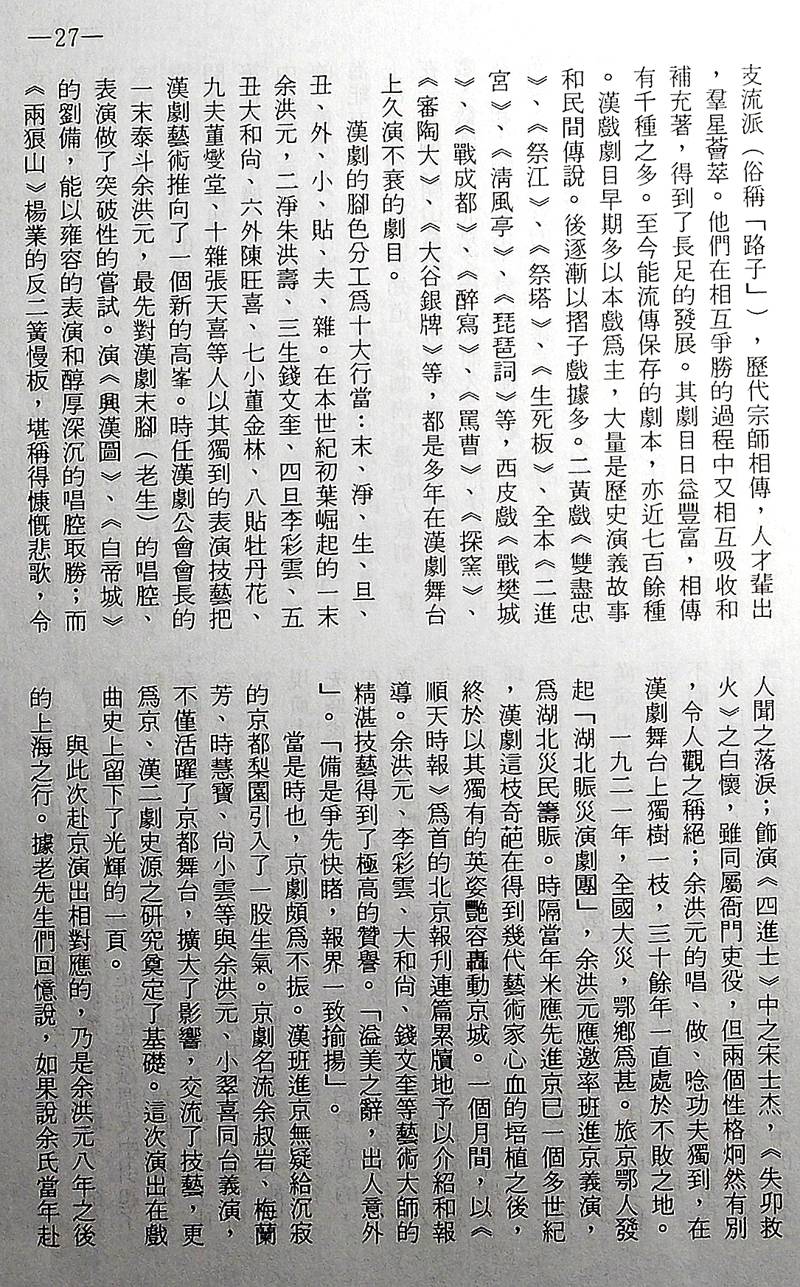 —27—
支流派（俗稱「路子」），歷代宗師相傳，人才輩出
，羣星薈萃。他們在相互爭勝的過程中又相互吸收和
補充著，得到了長足的發展。其劇目日益豐富，相傳
有千種之多。至今能流傳保存的劇本，亦近七百餘種
。漢戲劇目早期多以本戲爲主，大量是歷史演義故事
和民間傳說。後逐漸以摺子戲據多。二黃戲《雙盡忠
》、《祭江》、《祭塔》、《生死板》、全本《二進
宮》、《清風亭》、《琵琶詞》等，西皮戲《戰樊城
》、《戰成都》、《醉寫》、《罵曹》、《探窰》、
《審陶大》、《大谷銀牌》等，都是多年在漢劇舞台
上久演不衰的劇目。
漢劇的腳色分工爲十大行當：末、淨、生、旦、
丑、外、小、貼、夫、雜。在本世紀初葉崛起的一末
余洪元，二淨朱洪壽、三生錢文奎、四旦李彩雲、五
丑大和尙、六外陳旺喜、七小董金林、八貼牡丹花、
九夫董燮堂、十雜張天喜等人以其獨到的表演技藝把
漢劇藝術推向了一個新的高峯。時任漢劇公會會長的
一末泰斗余洪元，最先對漢劇末腳（老生）的唱腔、
表演做了突破性的嘗試。演《興漢圖》、《白帝城》
的劉備，能以雍容的表演和醇厚深沉的唱腔取勝；而
《兩狼山》楊業的反二簧慢板，堪稱得慷慨悲歌，令
人聞之落淚；飾演《四進士》中之宋士杰，《失卯救
火》之白懷，雖同屬衙門吏役，但兩個性格炯然有別
，令人觀之稱絕；余洪元的唱、做、唸功夫獨到，在
漢劇舞台上獨樹一枝，三十餘年一直處於不敗之地。
一九二一年，全國大災，鄂鄉爲甚。旅京鄂人發
起「湖北賑災演劇團」，余洪元應邀率班進京義演，
爲湖北災民籌賑。時隔當年米應先進京已一個多世紀
，漢劇這枝奇葩在得到幾代藝術家心血的培植之後，
終於以其獨有的英姿艷容轟動京城。一個月間，以《
順天時報》爲首的北京報刊連篇累牘地予以介紹和報
導。余洪元、李彩雲、大和尙、錢文奎等藝術大師的
精湛技藝得到了極高的贊譽。「溢美之辭，出人意外
」。「備是爭先快睹，報界一致揄揚」。
當是時也，京劇頗爲不振。漢班進京無疑給沉寂
的京都梨園引入了一股生氣。京劇名流余叔岩、梅蘭
芳、時慧寶、尙小雲等與余洪元、小翠喜同台義演，
不僅活躍了京都舞台，擴大了影響，交流了技藝，更
爲京、漢二劇史源之研究奠定了基礎。這次演出在戲
曲史上留下了光輝的一頁。
與此次赴京演出相對應的，乃是余洪元八年之後
的上海之行。據老先生們回憶說，如果說余氏當年赴